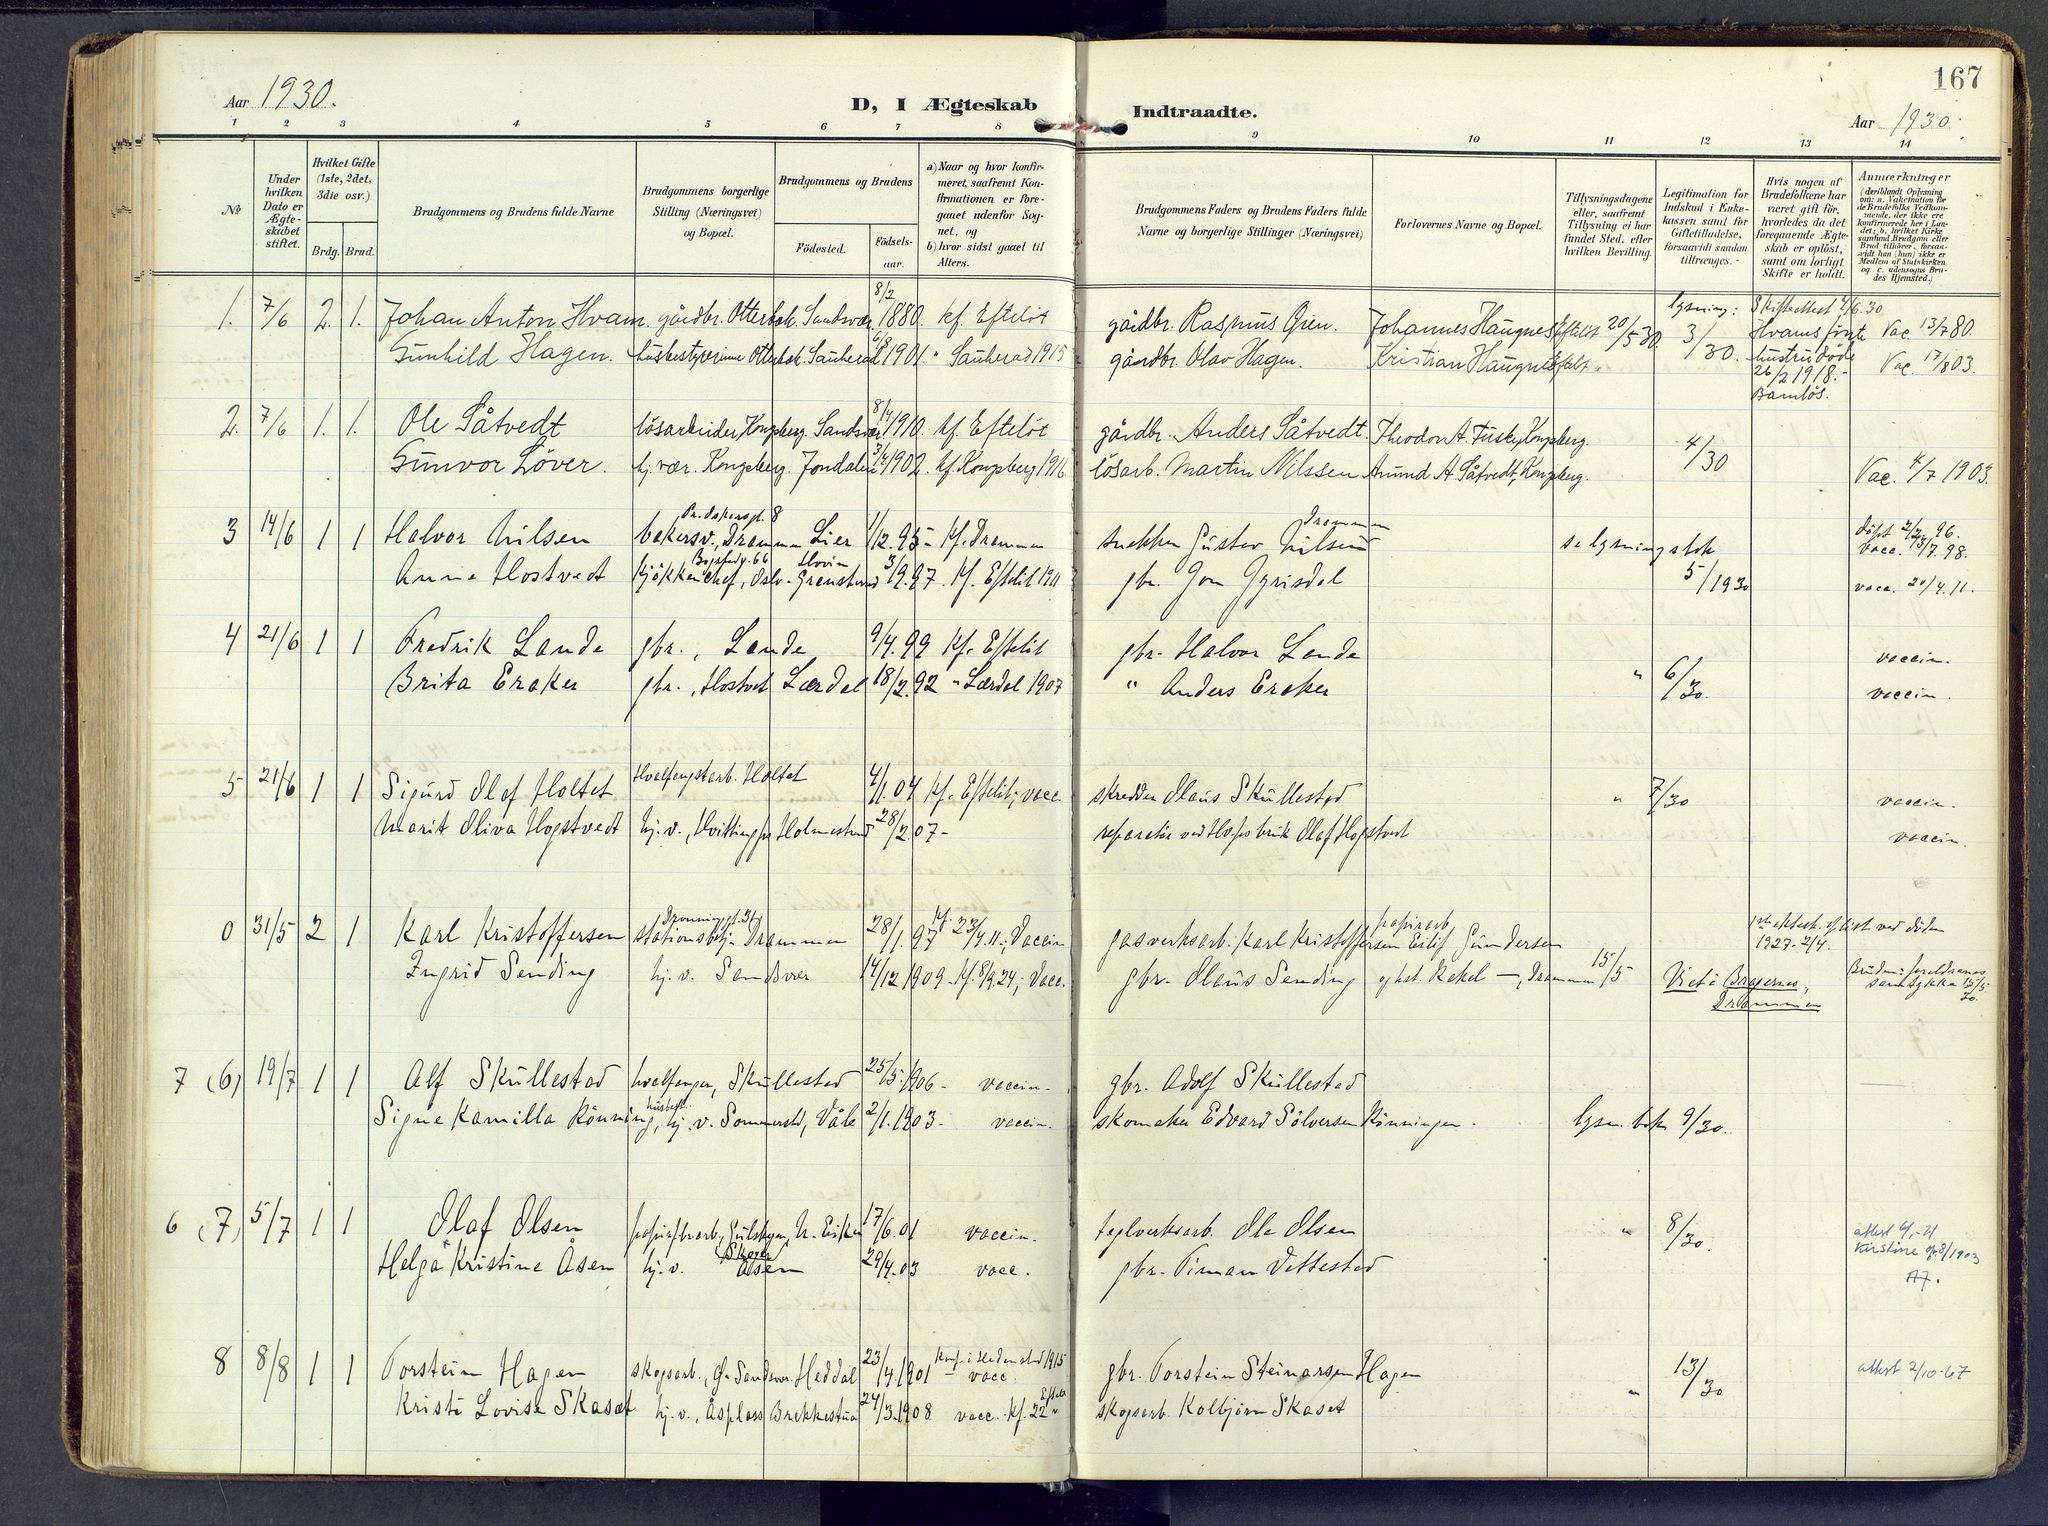 Aar 1930.
D, I Ægteskab Indtraadte.
167
Aar 1930.
1 2 3 4 5 6 7 8 9 10 11 12 13 14
№
Under hvilken Dato er Ægteskabet stiftet.
Hvilket Gifte (1ste, 2det, 3die osv.)
Brdg. Brud.
Brudgommens og Brudens fulde Navne
Brudgommens borgerlige Stilling (Næringsvei) og Bopæl.
Brudgommens og Brudens
Fødested. Fødselsaar.
a) Naar og hvor konfirmeret, saafremt Konfirmationen er foregaaet udenfor Sognet, og
b) hvor sidst gaaet til Alters.
Brudgommens Faders og Brudens Faders fulde Navne og borgerlige Stillinger (Næringsvei)
Forlovernes Navne og Bopæl.
Tillysningsdagene eller, saafremt Tillysning ei har fundet Sted, efter hvilken Bevilling.
Legitimation for Indskud i Enkekassen samt for Giftetilladelse, forsaavidt saadan tiltrænges.
Hvis nogen af Brudefolkene har været gift før, hvorledes da det foregaaende Ægteskab er opløst, samt om lovligt Skifte er holdt.
Anmærkninger
(deriblandt Oplysning om: a. Vakcination for de Brudefolks Vedkommende, der ikke ere konfirmerede her i Landet; b. hvilket Kirkesamfund Brudgom eller Brud tilhører, forsaavidt han (hun) ikke er Medlem af Statskirken og c. udensogns Brudes Hjemsted.)
1. 7/6 2. 1. Johan Anton Hvam gårdbr. Otterbek. Sandsvær 8/2 1880. kf. Efteløt gårdbr. Rasmus Gien. Johannes Haugnes Efteløt 20/5 30 lysning: 3/30. Skifteattest 4/6.30 Hvams første hustru død 26/2 1918.- Barnløs. Vac. 13/7 80.
Gunhild Hagen. husbestyrerinne Otterbek. Sauherad 6/8 1901. " Sauherad 1915 gårdbr. Olav Hagen. Kristian Haugnes Efteløt. Vac. 17/8 03.
2. 7/6 1. 1. Ole Såtvedt løsarbeider, Kongsberg. Sandsvær 8/4 1910. kf. Efteløt gårdbr. Anders Såtvedt. Theodor A. Fusky, Kongsberg 4/30
Gunvor Løver. hj. vær. Kongsberg. Jondalen 3/4 1902. kf. Kongsberg 1916 løsarb. Martin Nilssen Amund A Såtvedt, Kongsberg. Vac. 4/7 1903.
3 14/6 1 1 Halvor Nilsen bakersv., Drammen Lier 1/12.95- kf. Drammen snekker Gustav Nilsen Drammen se lysningsbok 5/1930 døpt 2/2 96. vacc. 13/7.98.
Anne Hostvedt kjøkkenchef, Oslo- Bogstadv. 66 Hovin Gransherad 3/9.97. kf. Efteløt 1911 gbr. Jon Gyrisdal vacc. 20/4.11.
4 21/6 1 1 Fredrik Lande gbr., Lande 9/4.99 kf. Efteløt gbr. Halvor Lande " 6/30. vaccin.
Brita Eraker gbr., Hostvet Lærdal 18/2.92 " Lærdal 1907 " Anders Eraker vaccin.
5 21/6 1 1 Sigurd Olaf Holtet Hvalfangstarb. Holtet 4/1.04 kf. Efteløt; vacc. skredder Olaus Skullestad " 7/30 vaccin.
Marit Oliva Hogstvedt hj. v., Hvittingfs Holmestrand 28/2 07- reparatør ved Hofs bruk Olaf Hogstvedt vaccin.
0 31/5 2 1 Karl Kristoffersen stationsbetj. Dronningt. 31 Drammen 28/1.97 kf. 23/4.11.; Vaccin gasverksarb. Karl Kristoffersen papirarb. Eilif Gundersen 1ste ektesk. opløst ved døden 1927-2/4.
Ingrid Sending hj. v. Sandsvær 14/12 1909- kf. 8/9.24; Vacc. gbr. Olaus Sending og hst. Rakel —, Drammen 15/5 Viet i Bragernes, Drammen Brudens foreldrenes samtykke 15/5 30.
7 (6) 19/7 1 1 Alf Skullestad hvalfanger, Skullestad 25/5.1906- vaccin- gbr. Adolf Skullestad
Signe Kamilla Rønning, husbest. hj. v. Sommerstd, Våle 2/1.1903- vaccin. skomaker Edvard Sølversen Rønningen. lysn. bok 9/30.
6 (7) 5/7 1 1 Olaf Olsen papirfbrarb., Gulskogen, N- Eiker 17/6.01 vaccin. teglverksarb. Ole Olsen " 8/30. attest 4/-21
Helga Kristine Åsen hj. v. Skoren Åsen 29/4.03 vacc. gbr. Timan Vettestad Kirstine 8/1903 A7.
8 8/8 1 1 Torstein Hagen skogsarb., Ø- Sandsvær Heddal 23/4.1901 konf. i Hedenstad 1915 - vacc. gbr. Torstein Steinarsen Hagen " 13/30 attest 2/10-67
Kristi Lovise Skaset hj. v., Åsplass Brekkestua 24/3.1908 vacc. kf. 22 Efteløt " skogsarb. Kolbjørn Skaset